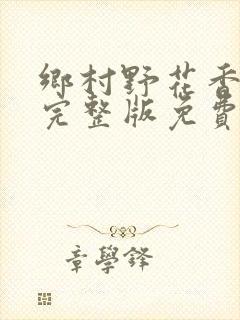 鄉村野花香
完整版免費
章學鋒